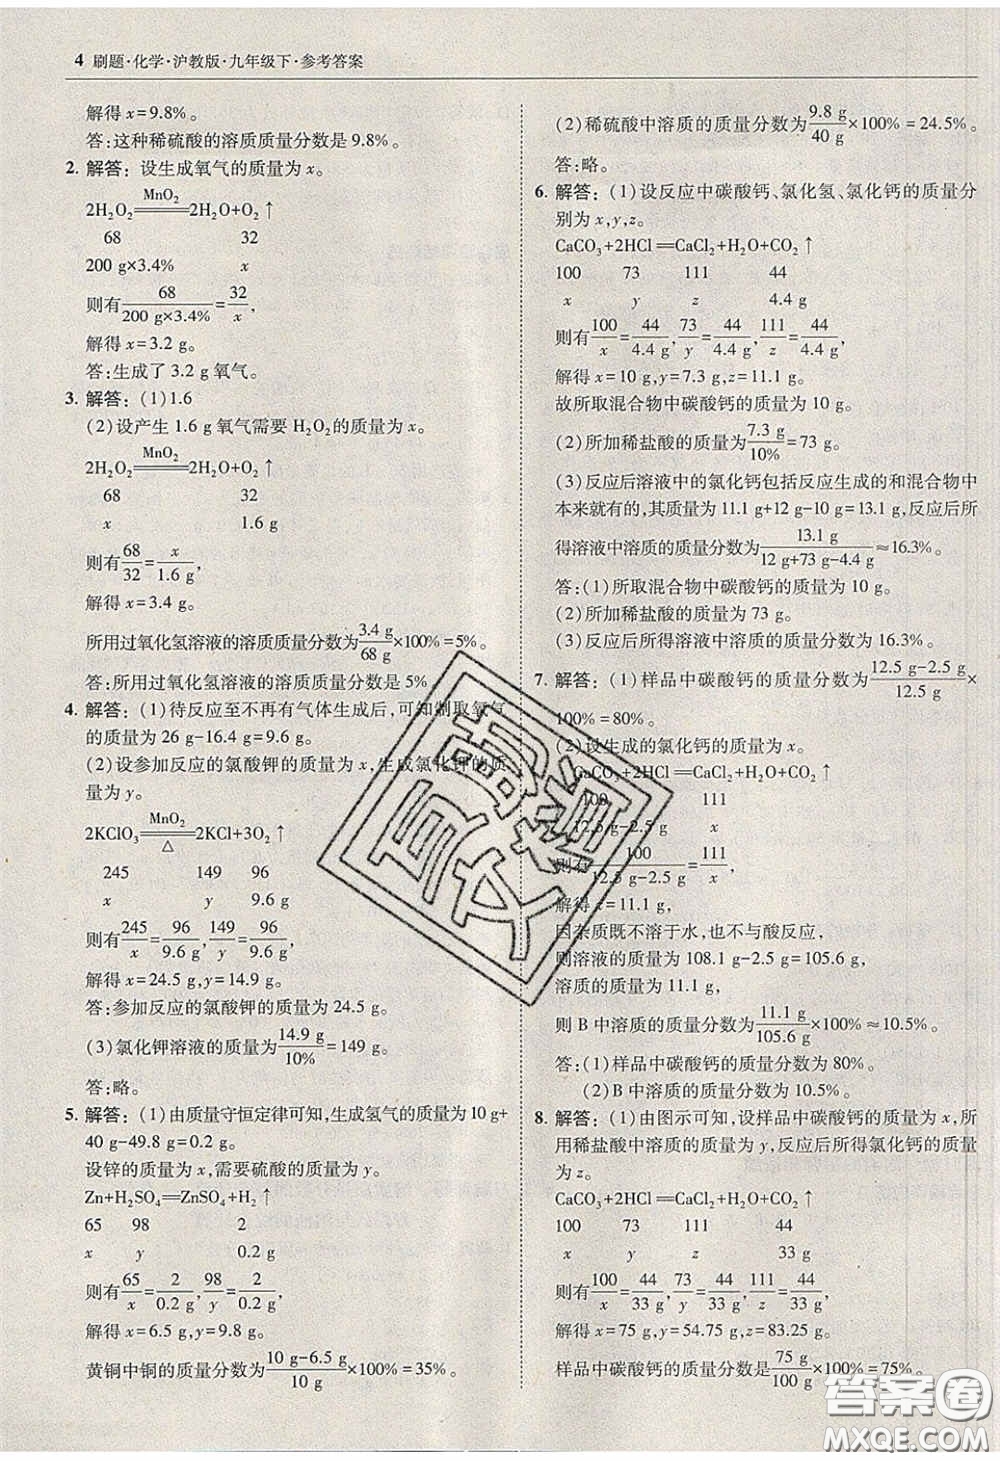 4 刷题·化学·沪教版·九年级下·参考答案
解得 x=9.8%。
答:这种稀硫酸的溶质质量分数是 9.8%。
2. 解答：设生成氧气的质量为 x。
MnO₂
2H₂O₂═══2H₂O+O₂↑
68 32
200 g×3.4% x
则有68/(200 g×3.4%)=32/x,
解得 x=3.2 g。
答:生成了 3.2 g 氧气。
3. 解答：(1)1.6
(2)设产生 1.6 g 氧气需要 H₂O₂的质量为 x。
MnO₂
2H₂O₂═══2H₂O+O₂↑
68 32
x 1.6 g
则有68/32=x/1.6 g,
解得 x=3.4 g。
所用过氧化氢溶液的溶质质量分数为3.4 g/68 g×100%=5%。
答:所用过氧化氢溶液的溶质质量分数是 5%
4. 解答：(1)待反应至不再有气体生成后,可知制取氧气
的质量为 26 g-16.4 g=9.6 g。
(2)设参加反应的氯酸钾的质量为 x,生成氯化钾的质
量为 y。
MnO₂
2KClO₃═══2KCl+3O₂↑
△
245 149 96
x y 9.6 g
则有245/x=96/9.6 g,149/y=96/9.6 g,
解得 x=24.5 g,y=14.9 g。
答:参加反应的氯酸钾的质量为 24.5 g。
(3)氯化钾溶液的质量为14.9 g/10%=149 g。
答:略。
5. 解答：(1)由质量守恒定律可知,生成氢气的质量为 10 g+
40 g-49.8 g=0.2 g。
设锌的质量为 x,需要硫酸的质量为 y。
Zn+H₂SO₄══ZnSO₄+H₂↑
65 98 2
x y 0.2 g
则有65/x=2/0.2 g,98/y=2/0.2 g,
解得 x=6.5 g,y=9.8 g。
黄铜中铜的质量分数为(10 g-6.5 g)/10 g×100%=35%。
(2)稀硫酸中溶质的质量分数为9.8 g/40 g×100%=24.5%。
答:略。
6. 解答：(1)设反应中碳酸钙、氯化氢、氯化钙的质量分
别为 x,y,z。
CaCO₃+2HCl══CaCl₂+H₂O+CO₂↑
100 73 111 44
x y z 4.4 g
则有100/x=44/4.4 g,73/y=44/4.4 g,111/z=44/4.4 g,
解得 x=10 g,y=7.3 g,z=11.1 g。
故所取混合物中碳酸钙的质量为 10 g。
(2)所加稀盐酸的质量为7.3 g/10%=73 g。
(3)反应后溶液中的氯化钙包括反应生成的和混合物中
本来就有的,其质量为 11.1 g+12 g-10 g=13.1 g,反应后所
得溶液中溶质的质量分数为13.1 g/(12 g+73 g-4.4 g)≈16.3%。
答:(1)所取混合物中碳酸钙的质量为 10 g。
(2)所加稀盐酸的质量为 73 g。
(3)反应后所得溶液中溶质的质量分数为 16.3%。
7. 解答：(1)样品中碳酸钙的质量分数为(12.5 g-2.5 g)/12.5 g×
100%=80%。
(2)设生成的氯化钙的质量为 x。
CaCO₃+2HCl══CaCl₂+H₂O+CO₂↑
100 111
12.5 g-2.5 g x
则有100/(12.5 g-2.5 g)=111/x,
解得 x=11.1 g,
因杂质既不溶于水,也不与酸反应,
则溶液的质量为 108.1 g-2.5 g=105.6 g,
溶质的质量为 11.1 g,
则 B 中溶质的质量分数为11.1 g/105.6 g×100%≈10.5%。
答:(1)样品中碳酸钙的质量分数为 80%。
(2)B 中溶质的质量分数为 10.5%。
8. 解答：(1)由图示可知,设样品中碳酸钙的质量为 x,所
用稀盐酸中溶质的质量为 y,反应后所得氯化钙的质量
为 z。
CaCO₃+2HCl══CaCl₂+H₂O+CO₂↑
100 73 111 44
x y z 33 g
则有100/x=44/33 g,73/y=44/33 g,111/z=44/33 g,
解得 x=75 g,y=54.75 g,z=83.25 g。
样品中碳酸钙的质量分数是75 g/100 g×100%=75%。
答案圈
MXQE.COM